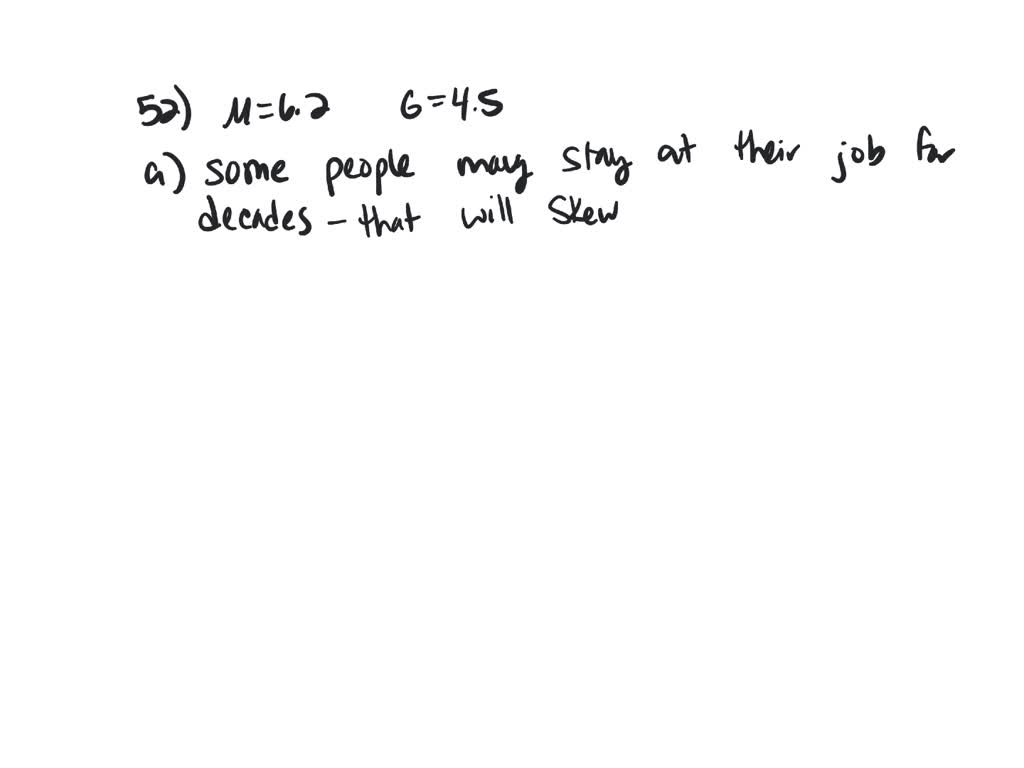 52) μ=6.2 σ=4.5
a) some people may stay at their job for
decades - that will skew